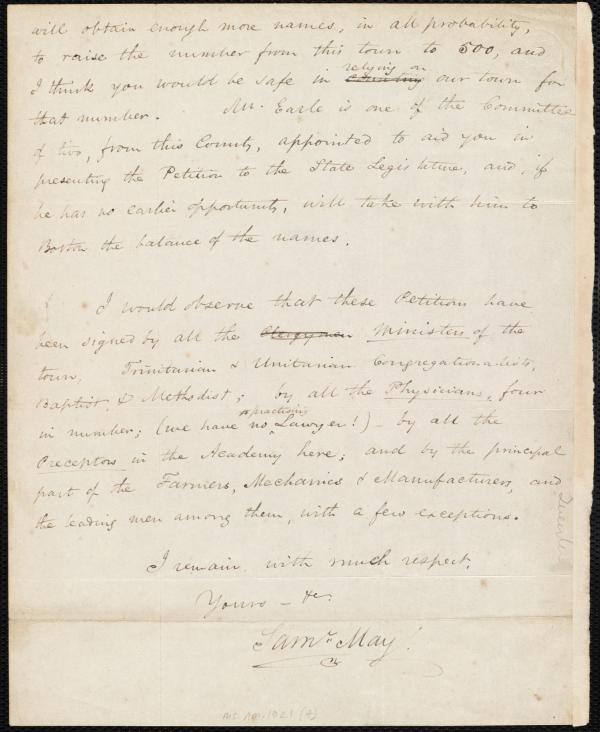 will obtain enough more names, in all probability,
to raise the number from this town to 500, and
I think you would be safe in counting relying on our town for
that number. Mr. Earle is one of the Committee
of two, from this County, appointed to aid you in
presenting the Petition to the State Legislature, and, if
he has no earlier opportunity, will take with him to
Boston the balance of the names.
I would observe that these Petitions have
been signed by all the Clergymen Ministers of the
town, Trinitarian & Unitarian Congregationalists,
Baptist, & Methodist; by all the Physicians, four
in number; (we have no practising Lawyer!) – by all the
Preceptors in the Academy here; and by the principal
part of the Farmers, Mechanics & Manufacturers, and
the leading men among them, with a few exceptions.
I remain, with much respect,
Yours – &c.
Saml. May